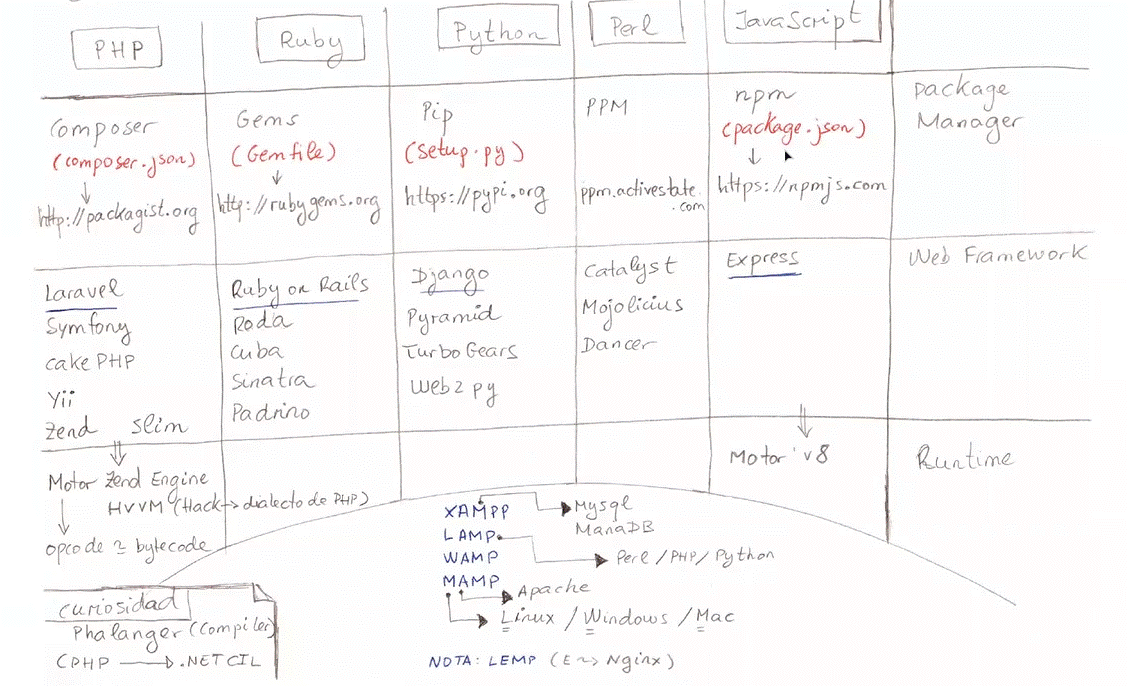 PHP
Ruby
Python
Perl
JavaScript
Composer
(composer.json)
http://packagist.org
Gems
(Gemfile)
http://rubygems.org
Pip
(setup.py)
https://pypi.org
PPM
ppm.activestate
.com
npm
(package.json)
https://npmjs.com
package
Manager
Laravel
Symfony
cake PHP
Yii
Zend Slim
Ruby on Rails
Roda
Cuba
Sinatra
Padrino
Django
Pyramid
TurboGears
Web2py
Catalyst
Mojolicius
Dancer
Express
Web Framework
Motor Zend Engine
HVVM (Hack → dialecto de PHP)
opcode ≃ bytecode
Motor v8
Runtime
XAMPP
LAMP
WAMP
MAMP
Mysql
MariaDB
Perl / PHP / Python
Apache
Linux / Windows / Mac
NOTA: LEMP (E ~> Nginx)
Curiosidad
Phalanger (Compiler)
CPHP → .NET CIL